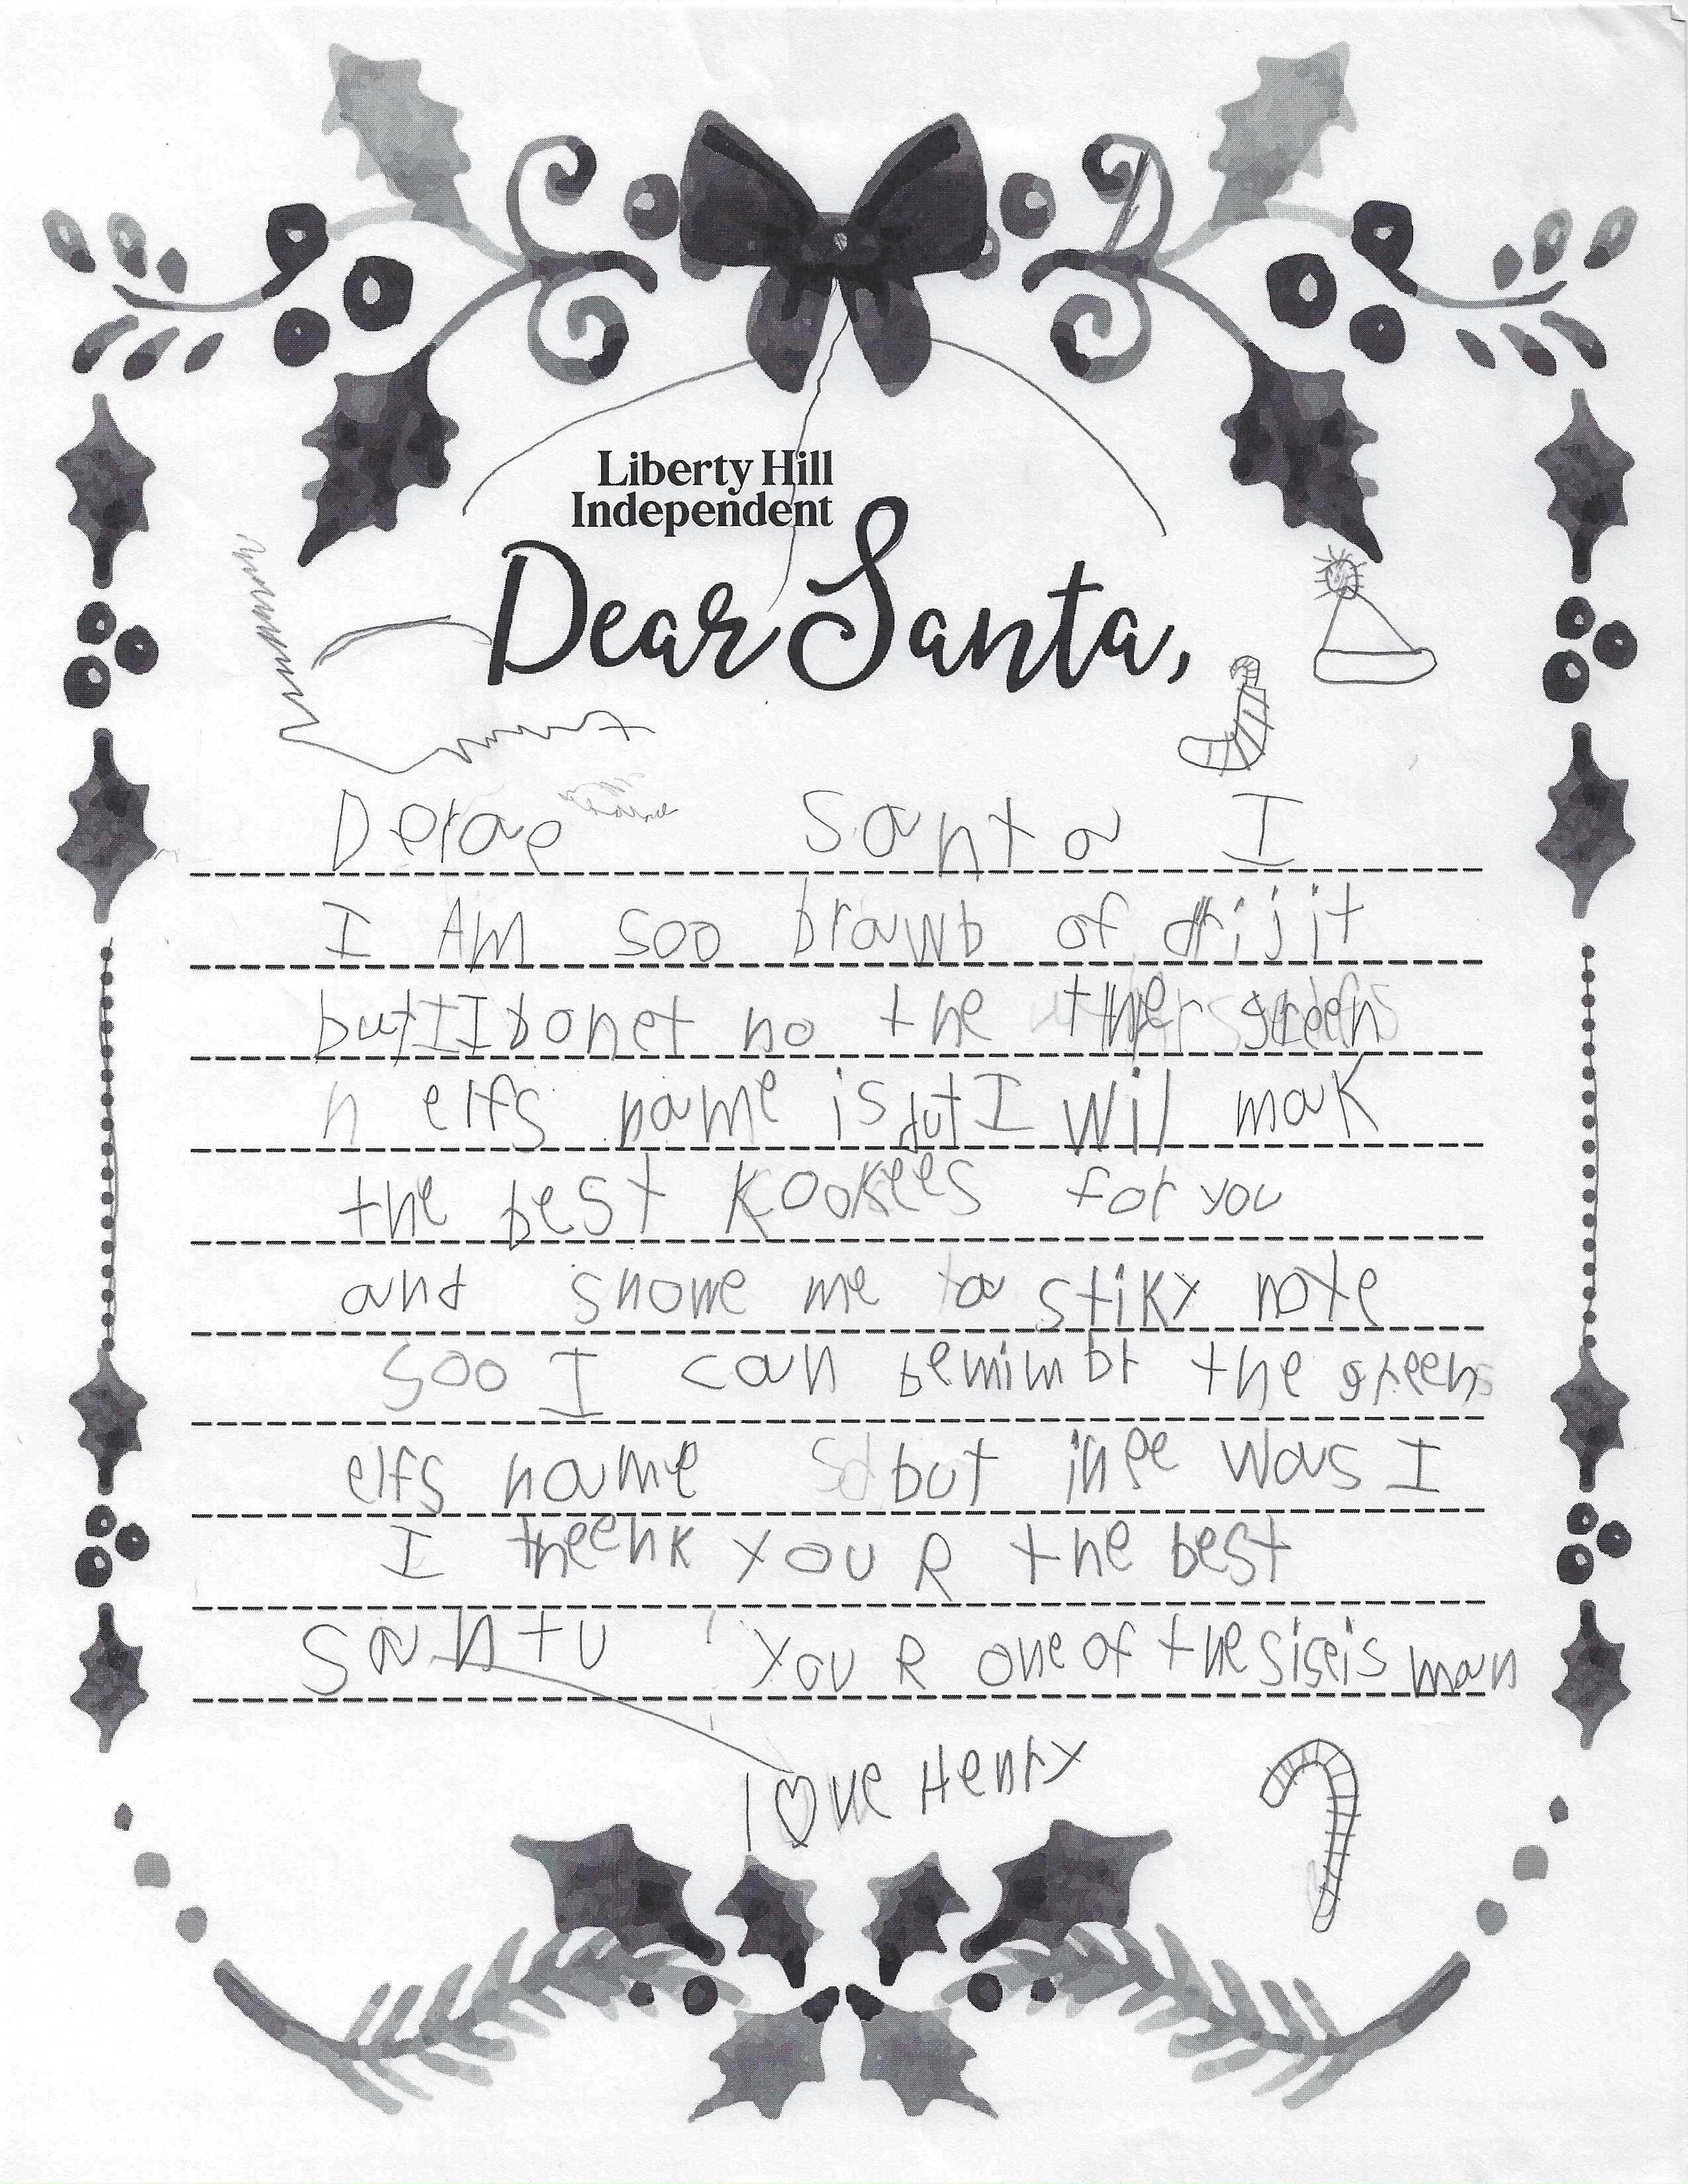 Liberty Hill
Independent
Dear Santa,
Derae Santa I
I AM soo brawb of drijit
butIIbonet no the ther green
n elfs name is but I wil mak
the best Kookees for you
and shome me a stiky note
soo I can bemimbr the green
elfs name but in ee was I
I theenk you R the best
Santu you R one of the siseis man
love Henry